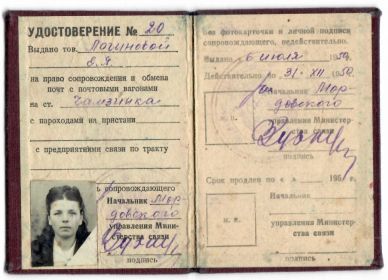 УДОСТОВЕРЕНИЕ № 20
Выдано тов. Логиновой
на право сопровождения и обмена
почт с почтовыми вагонами
на ст. Чамзинка
с пароходами на пристани
с предприятиями связи по тракту
сопровождающего
Начальник Мор-
довского
управления Минис-
терства связи
подпись
Без фотокарточки и личной подписи
сопровождающего, недействительно.
Выдано 6 июля 1950.
Действительно по 31-XII 1950.
Начальник Мор-
довского
управления Министер-
ства связи
подпись
Срок продлен по « » 195 г.
Начальник
м. п.
управления Министер-
ства связи
подпись